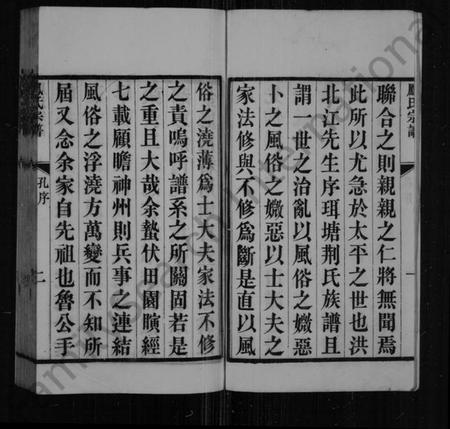 聯合之則親親之仁將無聞焉
此所以尤急於太平之世也洪
北江先生序珥塘荆氏族譜且
謂一世之治亂以風俗之媺惡
卜之風俗之媺惡以士大夫之
家法修與不修為斷是直以風
俗之澆薄為士大夫家法不修
之責嗚呼譜系之所關固若是
之重且大哉余蟄伏田園瞚經
七載顧瞻神州則兵事之連結
風俗之浮澆方萬變而不知所
屆又念余家自先祖也魯公手
氏宗譜
孔序
二
氏宗譜
一